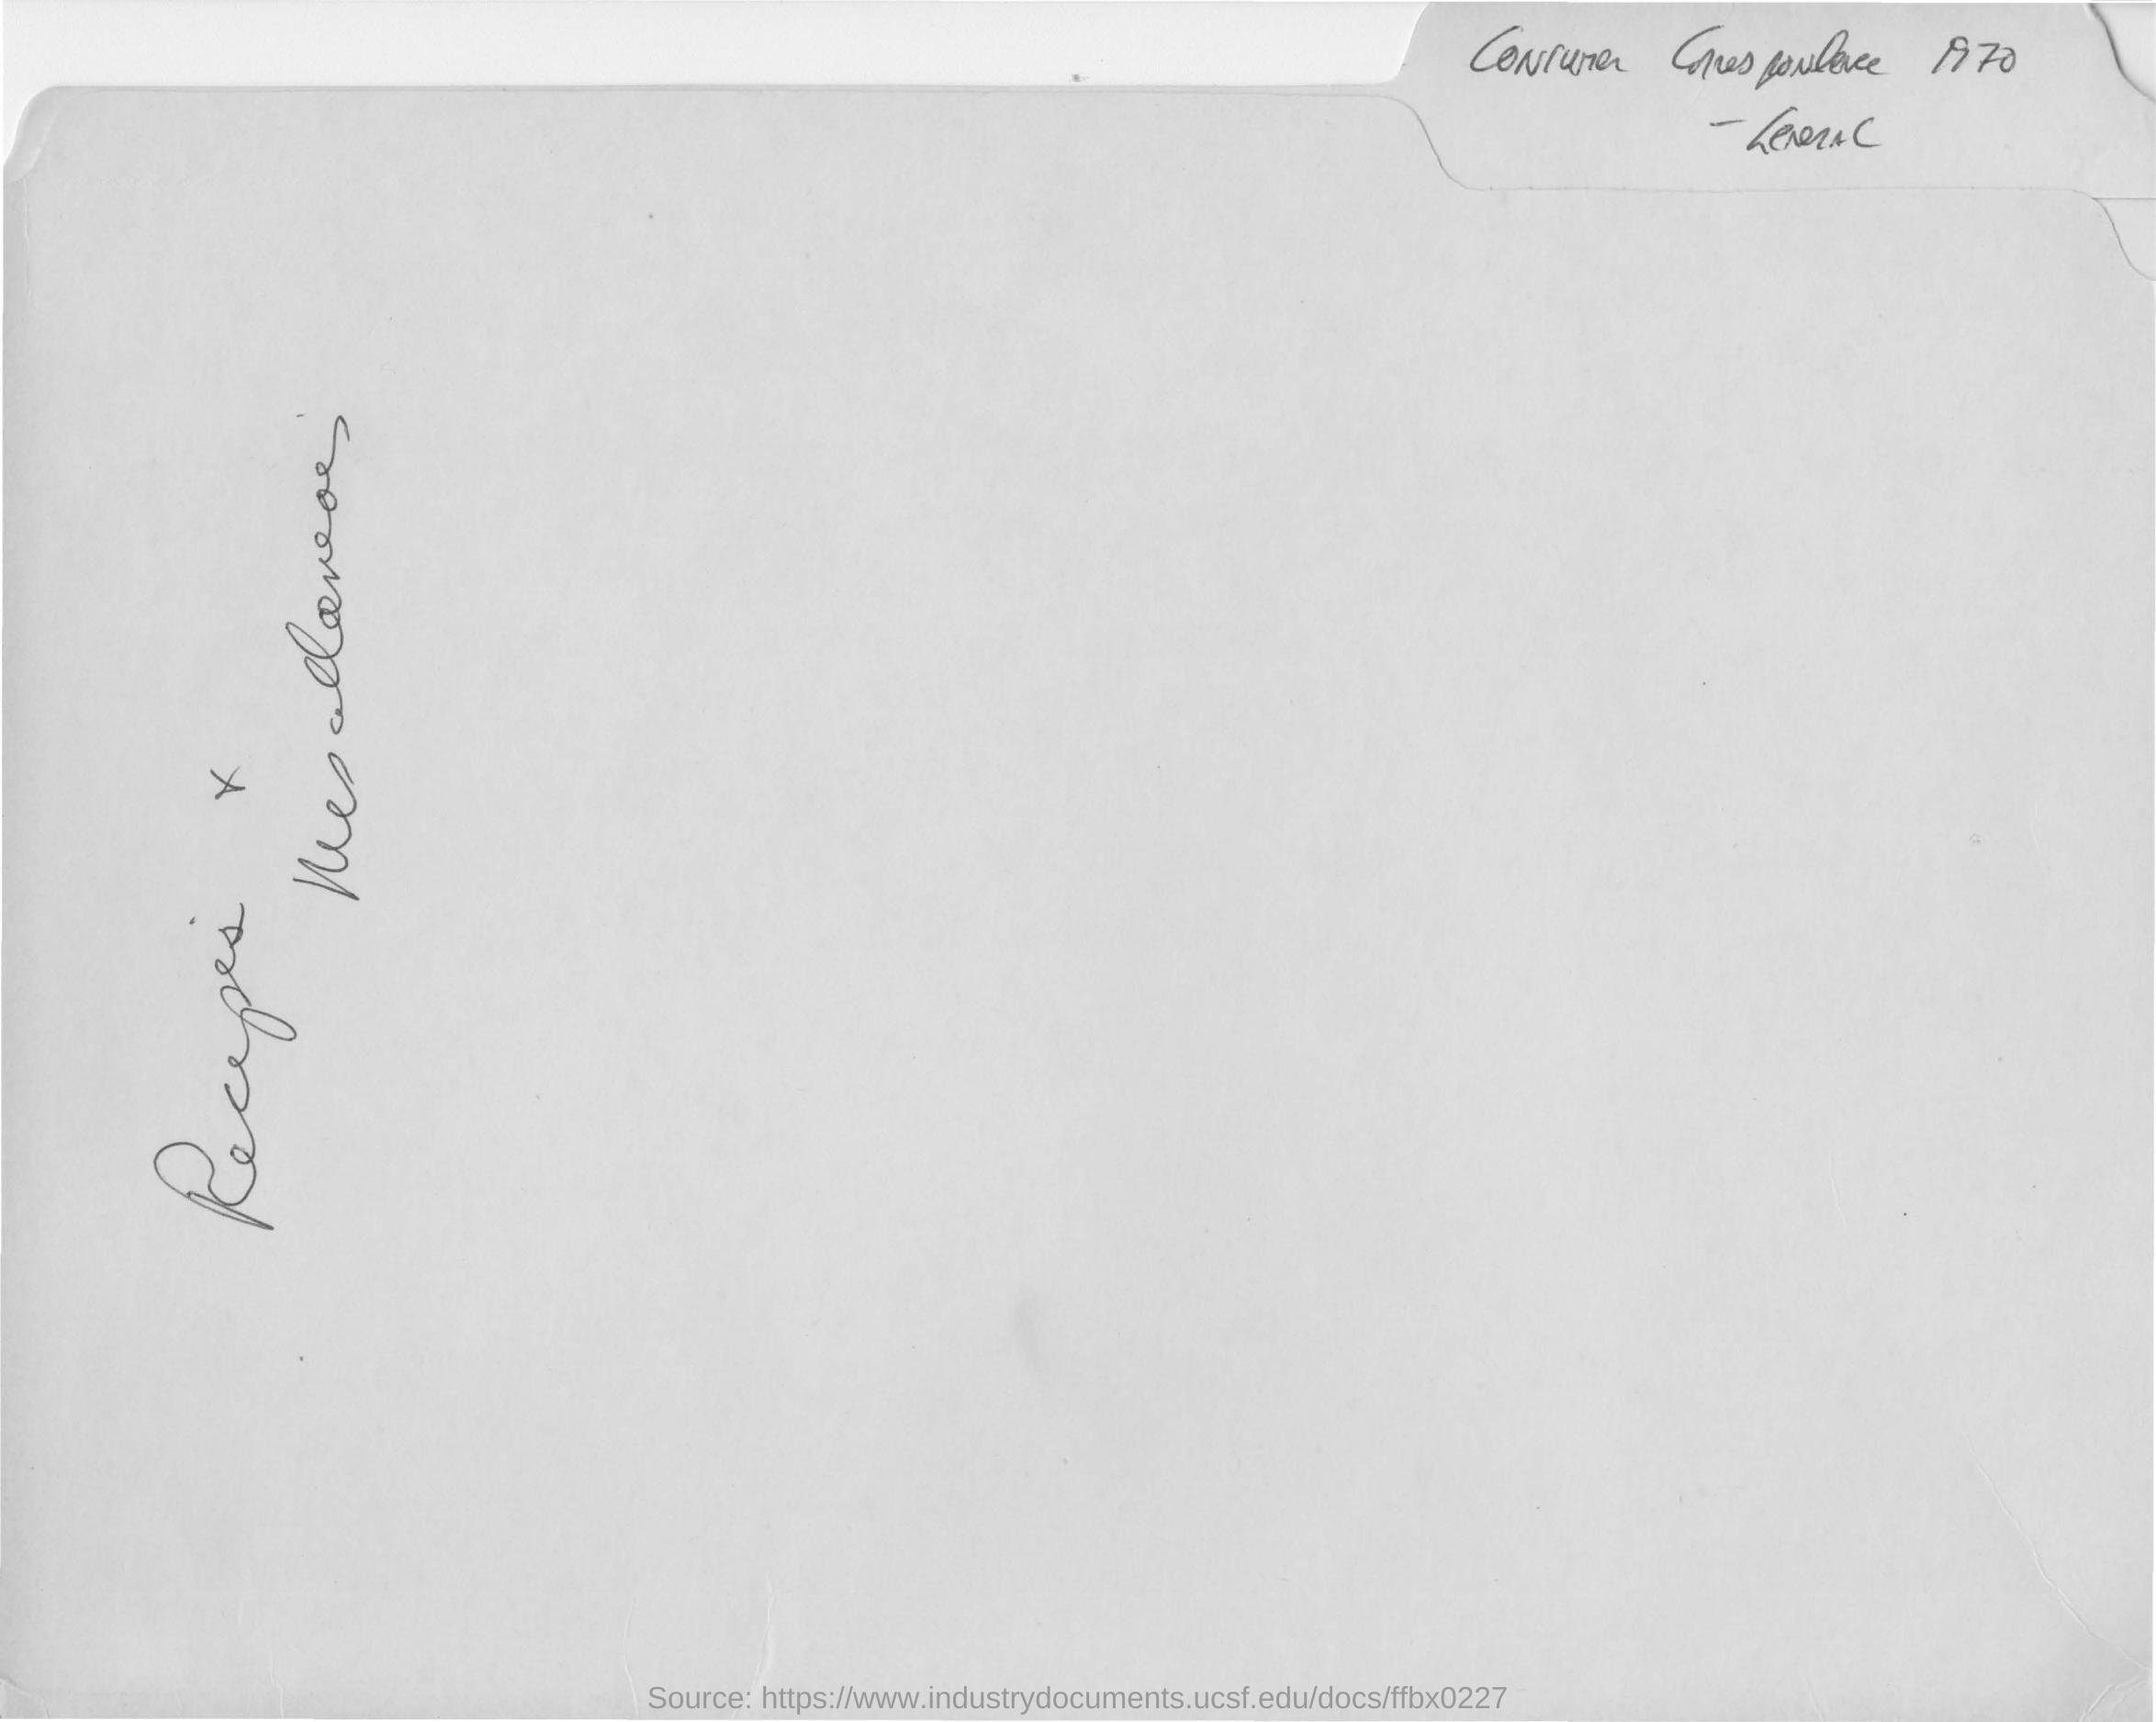 Consumer Correspondence 1970
- General
Recepis +
Source: https://www.industrydocuments.ucsf.edu/docs/ffbx0227